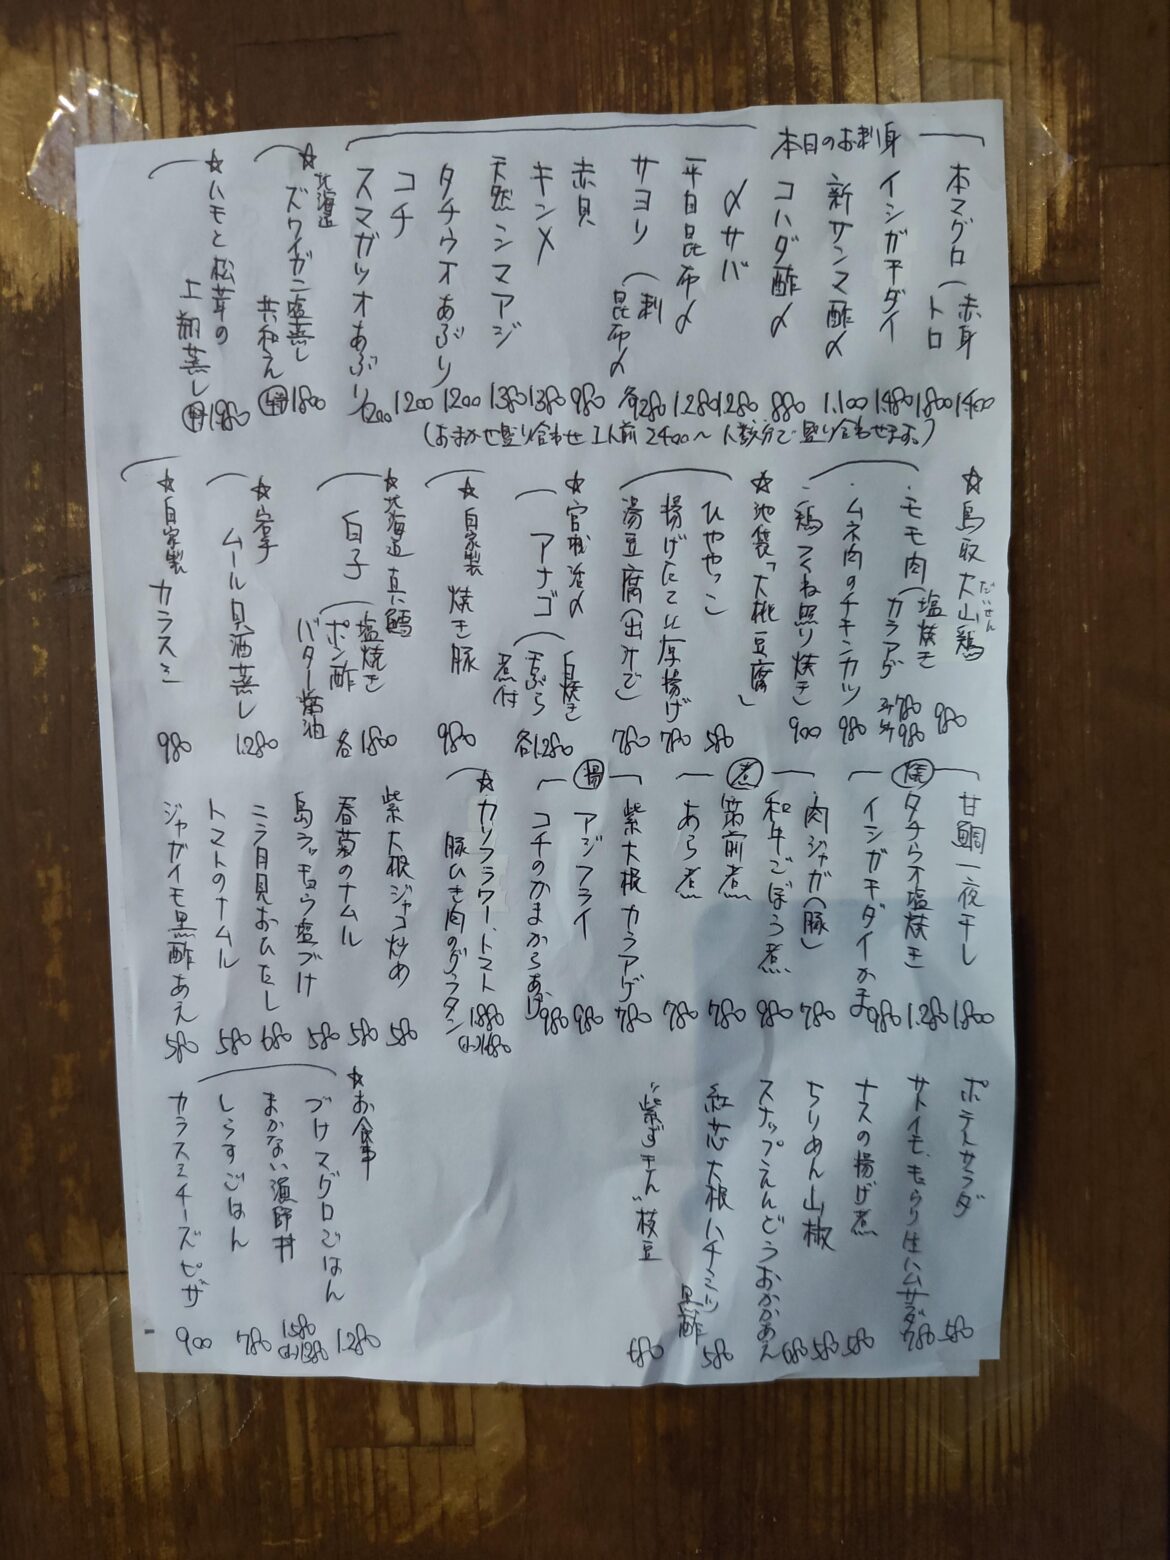 本日のお刺身
本マグロ 赤身 1400
トロ 1800
イシガキダイ 1.480
新サンマ酢〆 1.100
コハダ酢〆 880
〆サバ 1280
平目昆布〆 1.280
サヨリ 刺 昆布〆 各1280
赤貝 980
キンメ 1380
天然シマアジ 1.380
タチウオあぶり 1200
コチ 1200
スマガツオあぶり 1200
(おまかせ盛り合わせ 1人前 2400〜 人数分で盛り合わせます。)
☆北海道
ズワイガニ塩蒸し
共和え 1800
☆ハモと松茸の
土瓶蒸し 1980
☆鳥取大山鶏
だいせん
・モモ肉 塩焼き 980
カラアゲ 780 980
・ムネ肉のチキンカツ 980
・鶏つくね照り焼き 900
☆池袋「大桃豆腐」
ひややっこ 580
揚げたて厚揚げ 780
湯豆腐(出汁で) 780
☆宮城活〆
アナゴ 白焼き 天ぷら 煮付 各1280
☆自家製
焼き豚 980
☆北海道真鱈
白子 塩焼き ポン酢 バター醤油 各1800
☆岩手
ムール貝酒蒸し 1.280
☆自家製 カラスミ 980
甘鯛一夜干し 1800
焼
タチウオ塩焼き 1.280
イシガキダイかま 980
煮
肉ジャガ(豚) 780
和牛ごぼう煮 980
筑前煮 780
あら煮 780
揚
紫大根カラアゲ 780
アジフライ 980
コチのかまからあげ 980
☆カリフラワー、トマト
豚ひき肉のグラタン 1.880
(小)1480
紫大根ジャコ炒め 580
春菊のナムル 580
島ラッキョウ塩づけ 580
ニラ月見おひたし 680
トマトのナムル 580
ジャガイモ黒酢あえ 580
ポテトサラダ 580
サトイモ、もろきゅう生ハムサラダ 780
ナスの揚げ煮 580
ちりめん山椒 580
スナップえんどうおかかあえ 680
紅芯大根ハチミツ
黒酢 580
"紫ずきん"枝豆 680
☆お食事
づけマグロごはん 1.280
まかない漁師丼 1580
(小)1380
しらすごはん 780
カラスミチーズピザ 900